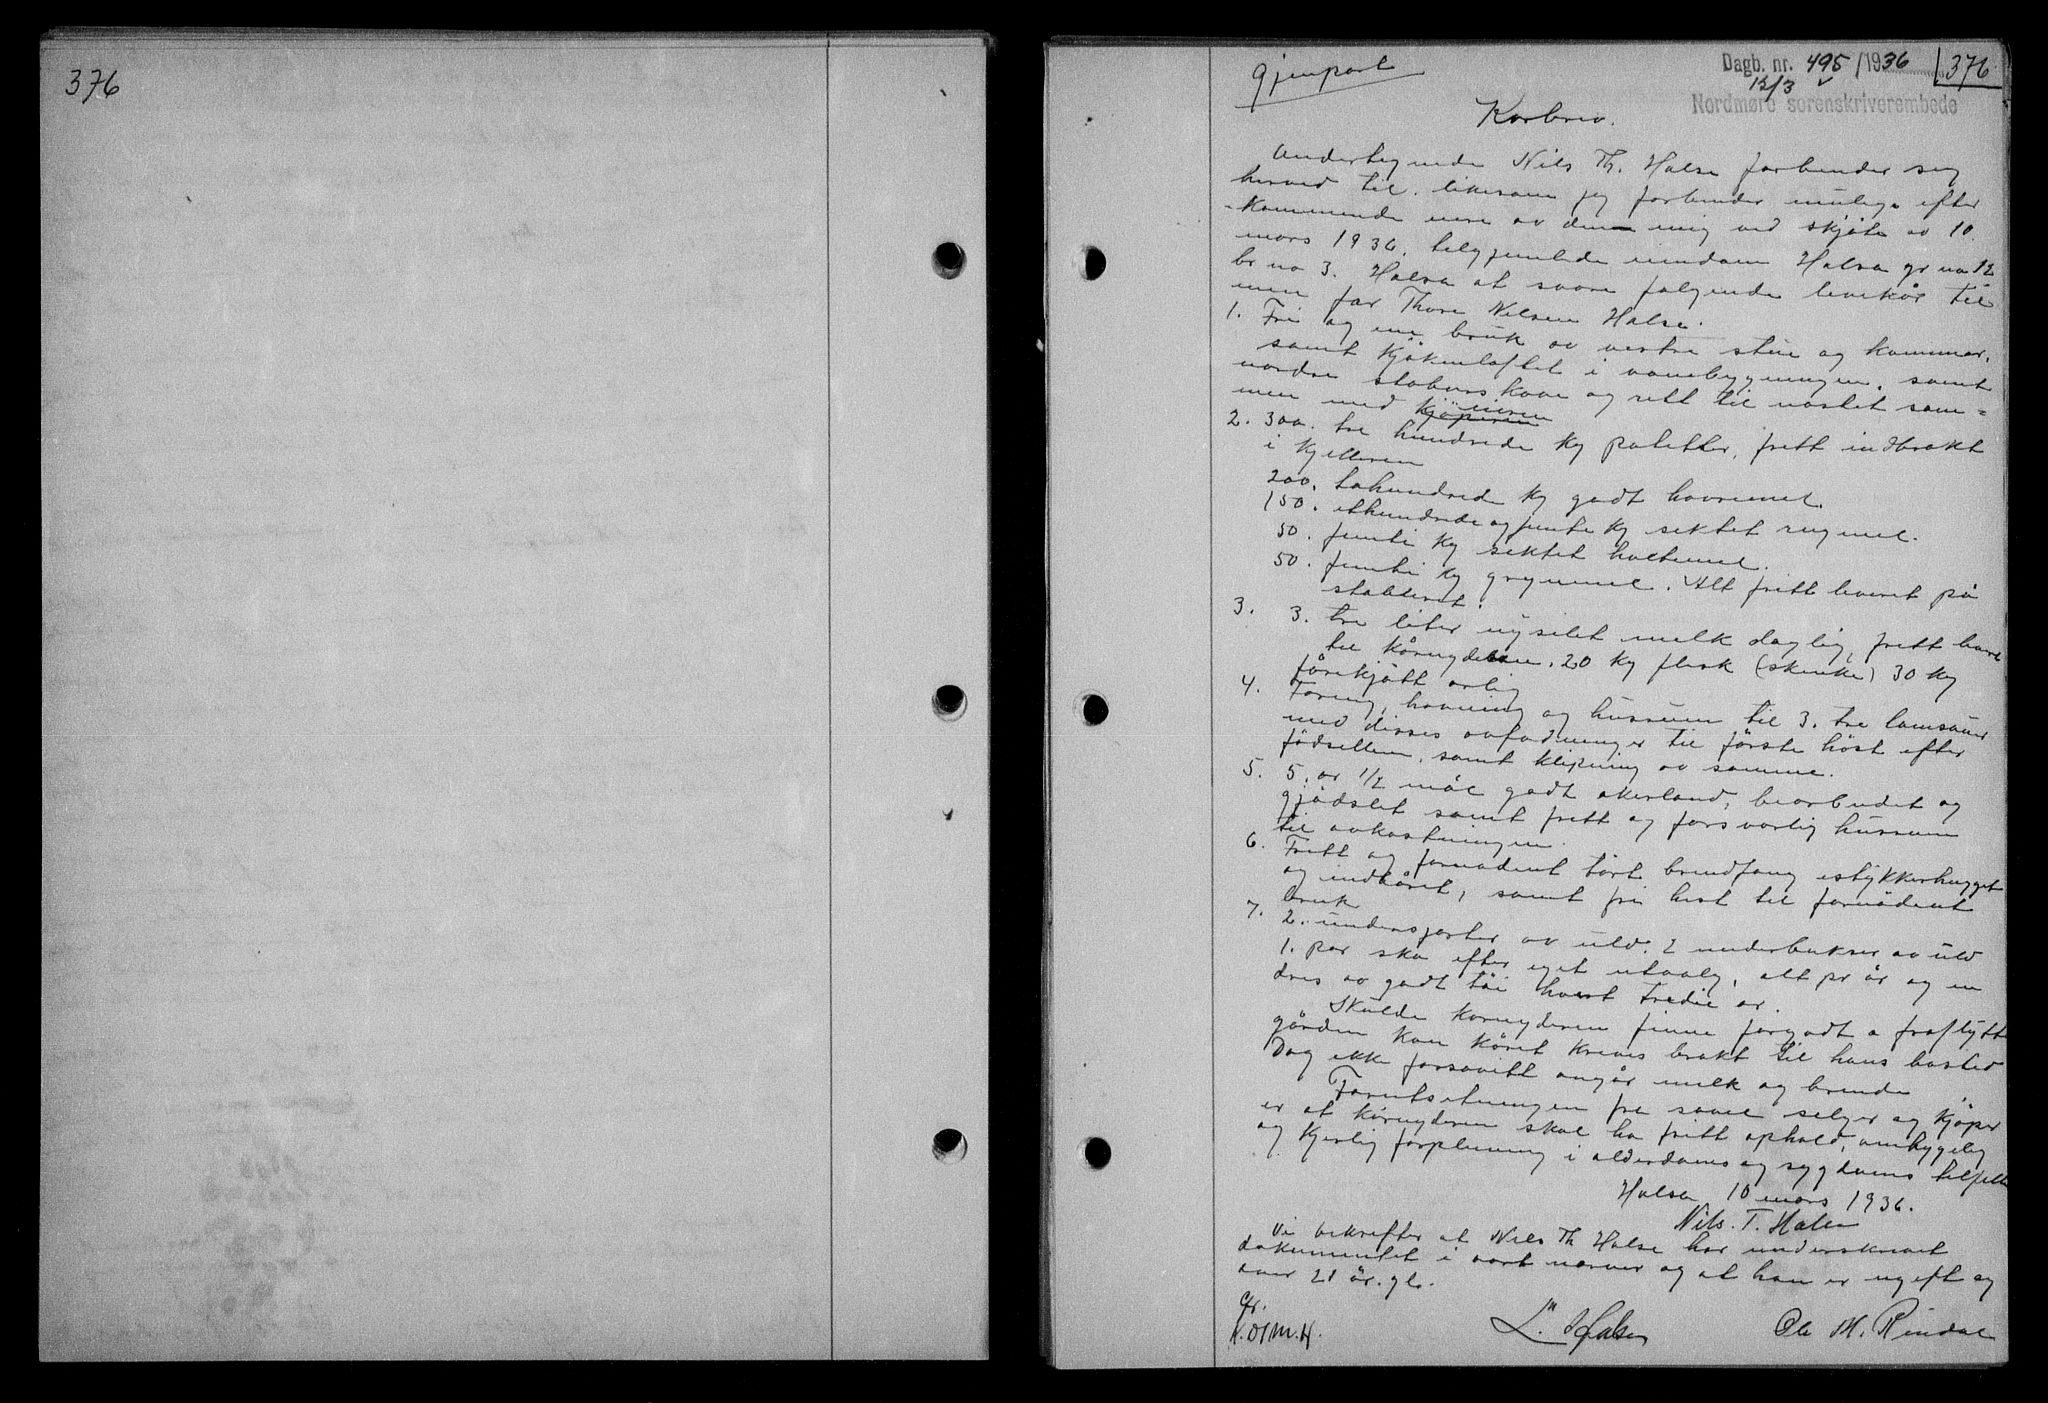 376
Gjenpart
Dagb. nr. 495/1936
376
13/3
Nordmøre sorenskriverembede
Kårbrev.
Undertegnede Nils Th. Halse forbinder seg
herved til, likesom jeg forbinder mulige efter
-kommende eiere av den mig ved skjøte av 10
mars 1936, tilhjemlede eiendom Halsa gr no 12
br no 3. Halsa at svare følgende livekår til
min far Thore Nilsen Halse.
1. Fri og ene bruk av vestre stue og kammer,
samt kjökenloftet i vånebygningen, samt
nordre stabursskove og rett til nöstet sam=
men med kjöperen eieren
2. 300. tre hundrede kg poteter, fritt indbrakt
i kjelleren
200. tohundrede kg godt havremel.
150. ethundrede og femti kg siktet rugmel.
50. femti kg siktet hvetemel.
50. femti kg grynmel. Alt fritt levert på
stabburet.
3. 3. tre liter nysilet melk daglig, fritt båret
til kårnyderen. 20 kg flesk (skinke) 30 kg
fårekjött årlig
4. Foring, havning og husrum til 3. tre lamsauer
med disses avfödninger til förste höst efter
födsellen, samt klipning av samme.
5. 5. ar 1/2 mål godt akerland, bearbeidet og
gjödslet samt fritt og forsvarlig husrum
til avkastningen.
6. Fritt og fornödent tört brendfang istykkerhugget
og indbåret, samt fri hest til fornödent
bruk
7. 2. underskjorter av uld. 2 underbukser av uld
1. par sko efter eget utvalg, alt pr år og en
dres av godt töi hvert tredie ar.
Skulde kårnyderen finne forgodt a fraflytte
gården kan kåret kreves brakt til hans bosted
Dog ikke forsåvitt angår melk og brende
Forutsetningen fra såvel selger og kjöper
er at kårnyderen skal ha fritt ophold, omhyggelig
og kjerlig forpleining i alderdoms og sygdoms tilfelle
Halsa 10 mars 1936.
Nils. T. Halse
Vi bekrefter at Nils Th Halse har underskrevet
dokumentet i vort nerver og at han er ugift og
over 21 år. gl.
Gr.
L. Halsen Ole M. Rindal